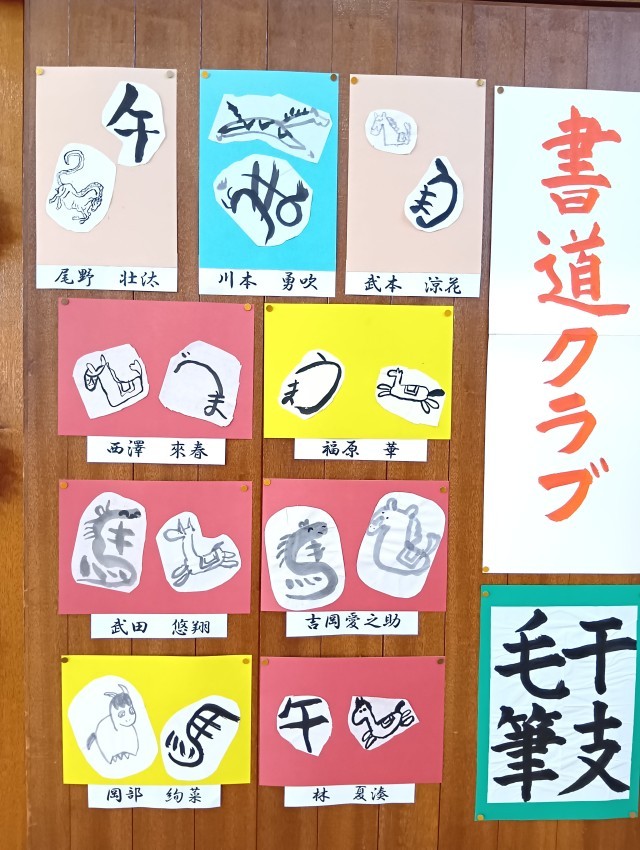 書道クラブ
干支
毛筆
午
尾野 壮汰
川本 勇吹
うま
武本 涼花
うま
西澤 來春
うま
福原 華
馬
武田 悠翔
馬
吉岡愛之助
馬
岡部 絢菜
午
林 夏湊